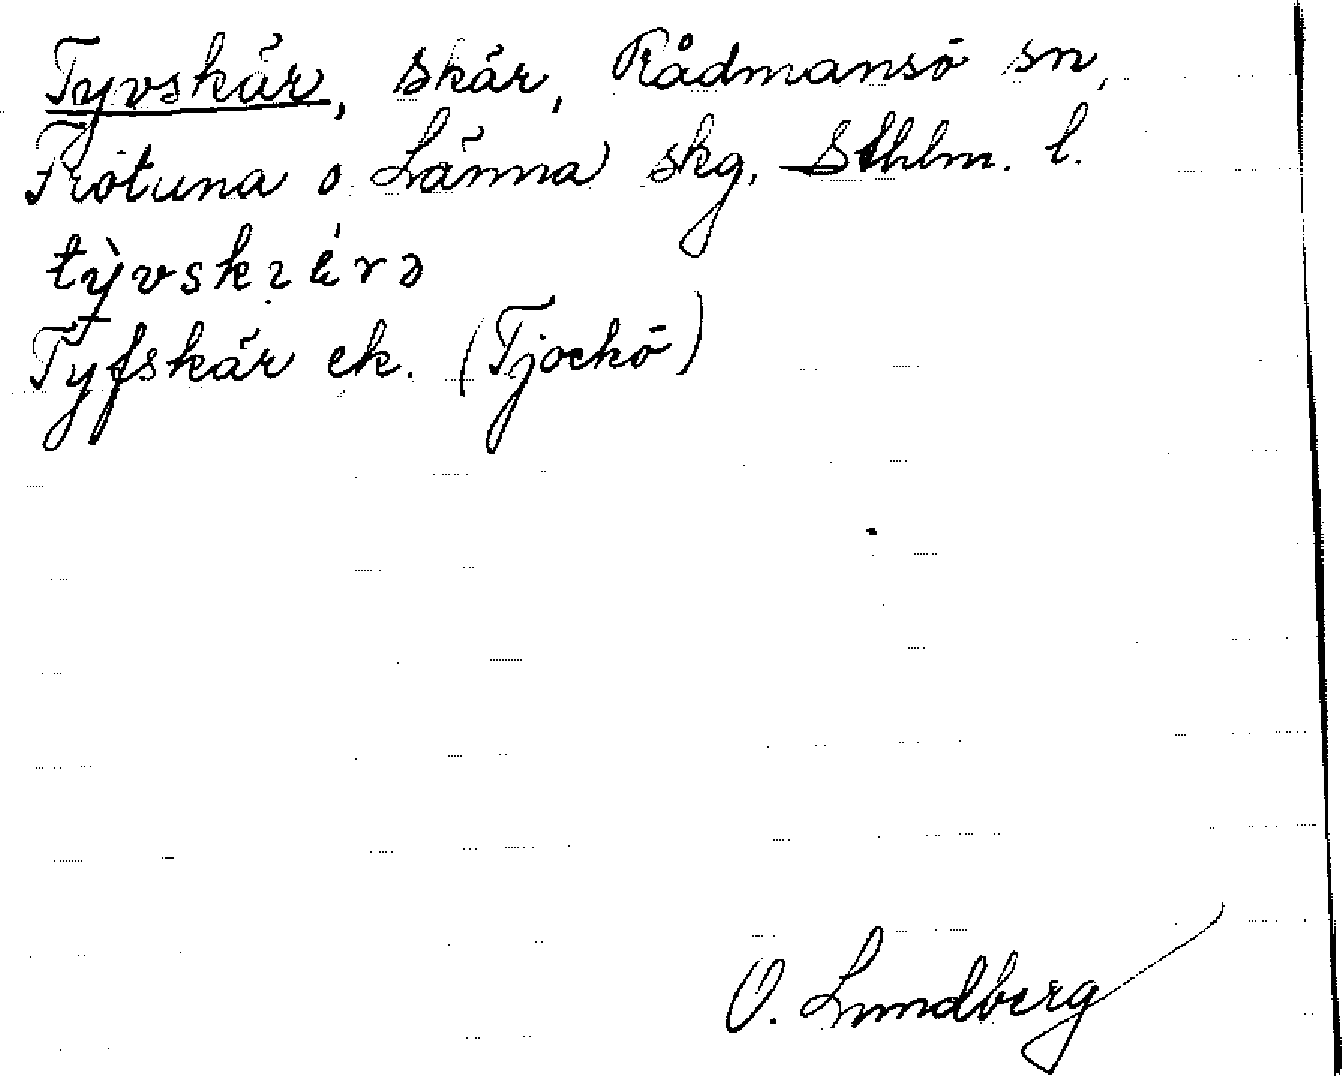 Tyvskär, skär, Rådmansö sn,
Frötuna o Länna skg, Sthlm. l.
Tyfskär ek. (Tjockö)
O. Lundberg